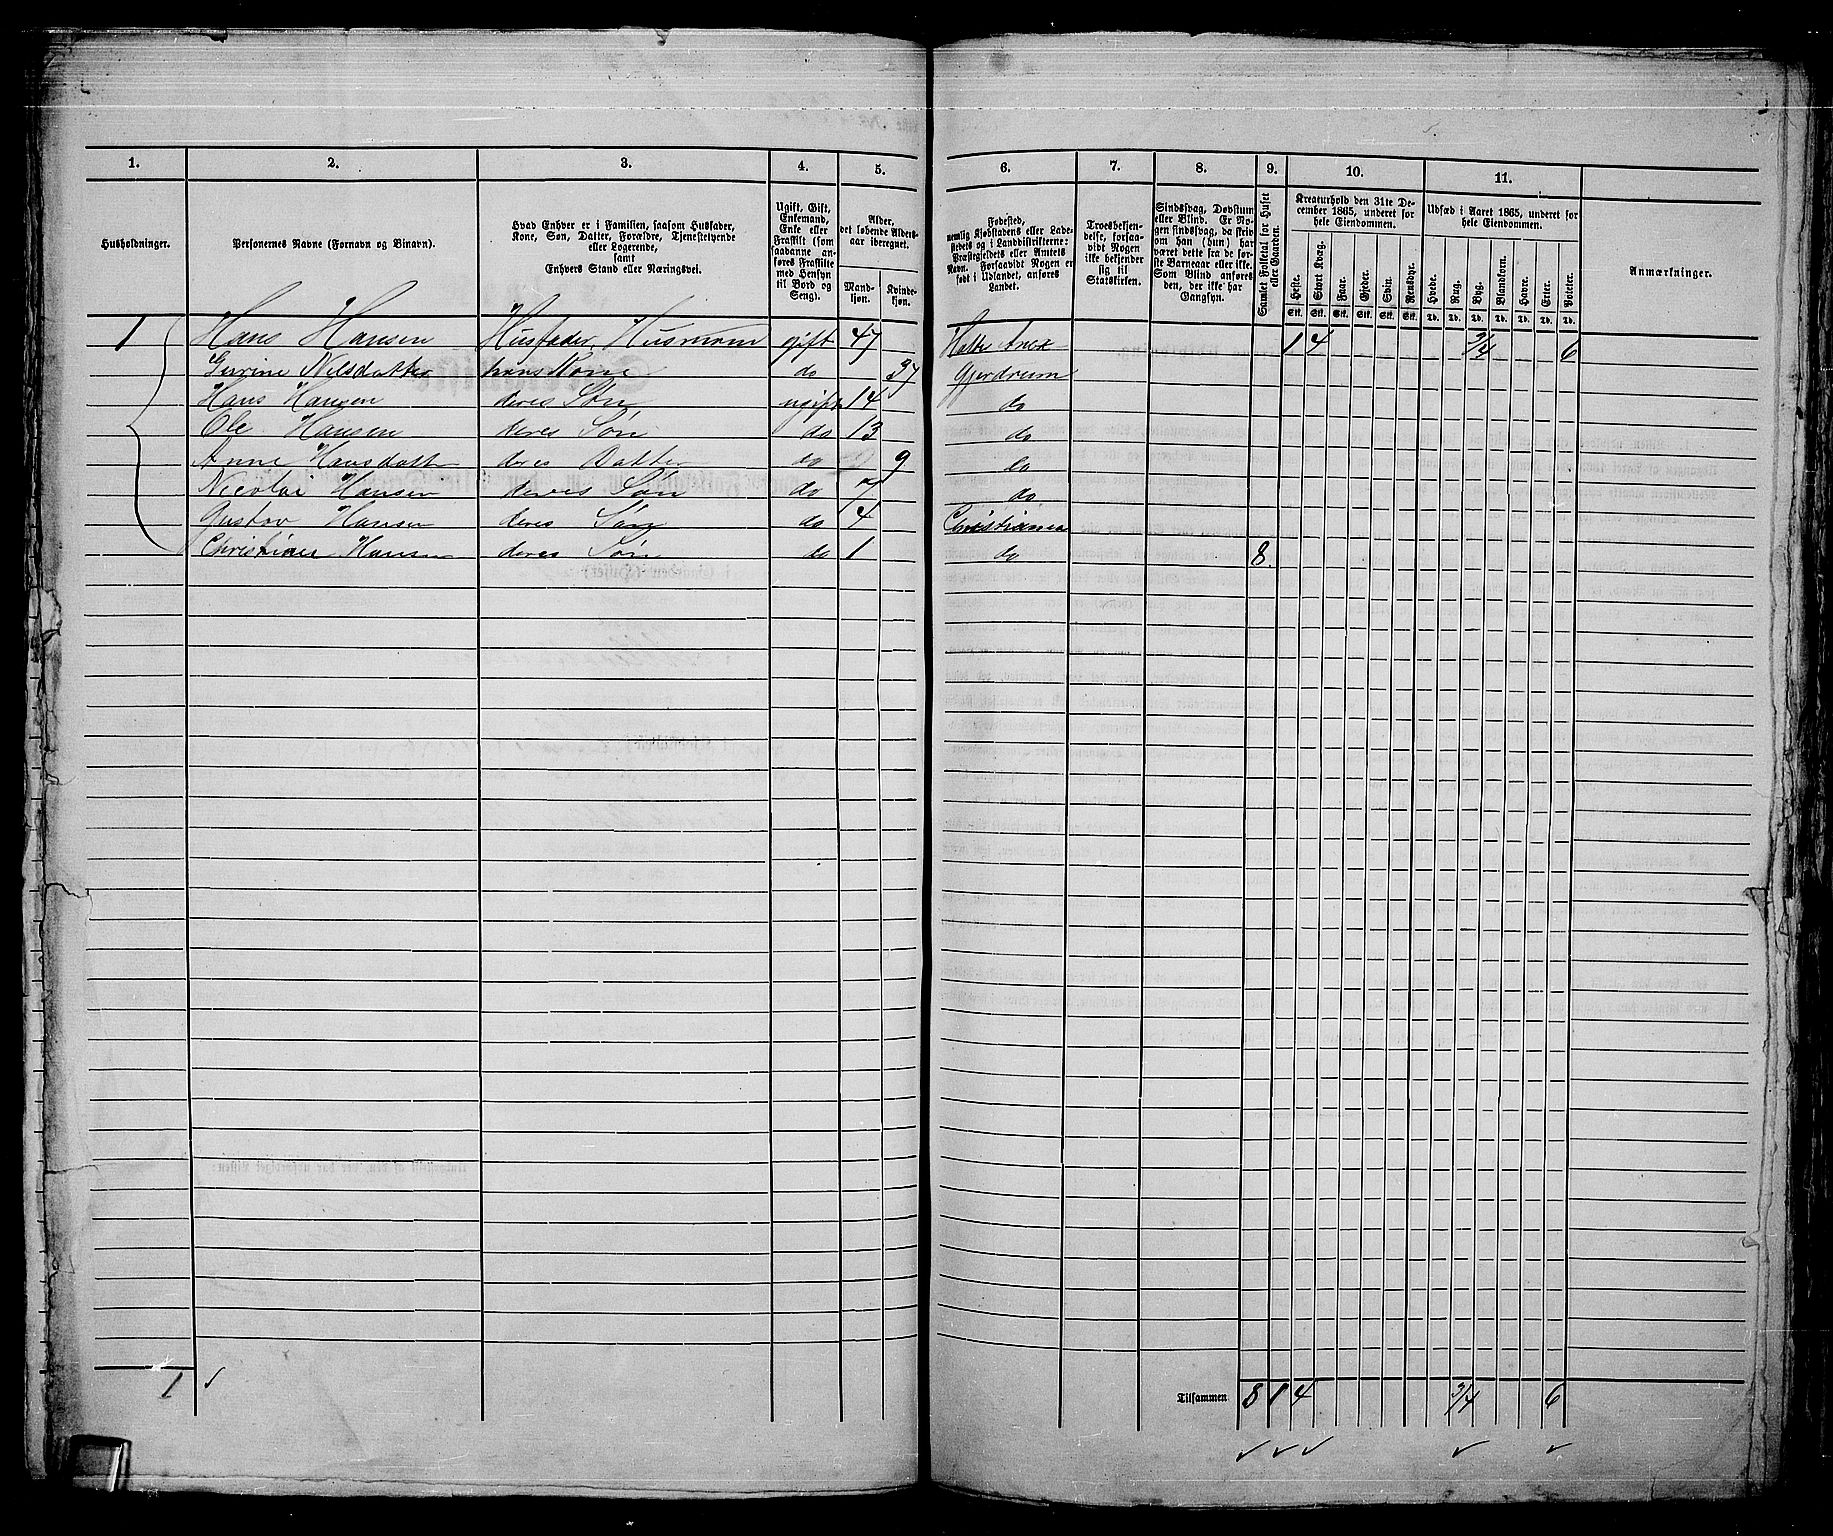 1. 2. 3. 4. 5. 6. 7. 8. 9. 10. 11.
Husholdninger.
Personernes Navne (Fornavn og Binavn).
Hvad Enhver er i Familien, saasom Husfader,
Kone, Søn, Datter, Forældre, Tjenestetyende
eller Logerende,
samt
Enhvers Stand eller Næringsvei.
Ugift, Gift,
Enkemand,
Enke eller
Fraskilt (som
saadanne an-
føres Fraskilte
med Hensyn
til Bord og
Seng).
Alder,
det løbende Alders-
aar iberegnet.
Mand-
kjøn.
Kvinde-
kjøn.
Fødested,
nemlig Kjøbstadens eller Lade-
stedets og i Landdistrikterne:
Præstegjeldets eller Amtets
Navn. Forsaavidt Nogen er
født i Udlandet, anføres
Landet.
Troesbekjen-
delse, forsaa-
vidt Nogen
ikke bekjender
sig til
Statskirken.
Sindssvag, Døvstum
eller Blind. Er No-
gen sindssvag, da skriv
om han (hun) har
været dette fra de før-
ste Barneaar eller ikke.
Som Blind anføres
den, der ikke har
Gangsyn.
Samlet Folketal for Huset
eller Gaarden.
Kreaturhold den 31te De-
cember 1865, underet for
hele Eiendommen.
Heste. Stort Kvæg. Faar. Gjeder. Svin. Rensdyr.
Stk. Stk. Stk. Stk. Stk. Stk.
Udsæd i Aaret 1865, underet for
hele Eiendommen.
Hvede. Rug. Byg. Blandkorn. Havre. Erter. Poteter.
Td. Td. Td. Td. Td. Td. Td.
Anmærkninger.
1 Hans Hansen Husfader, Husmand gift 47 Anex 1 4 3/4 6
Nilsdatter hans Kone do 37 Gjerdrum
Hans Hansen deres Søn ugift 14 do
Ole Hansen deres Søn do 13 do
Anne Hansdatter deres Datter do 9 do
Nicolai Hansen deres Søn do 7 do
Gustav Hansen deres Søn do 4 Christiania
Christian Hansen deres Søn do 1 do 8
1
Tilsammen 8 1 4 3/4 6